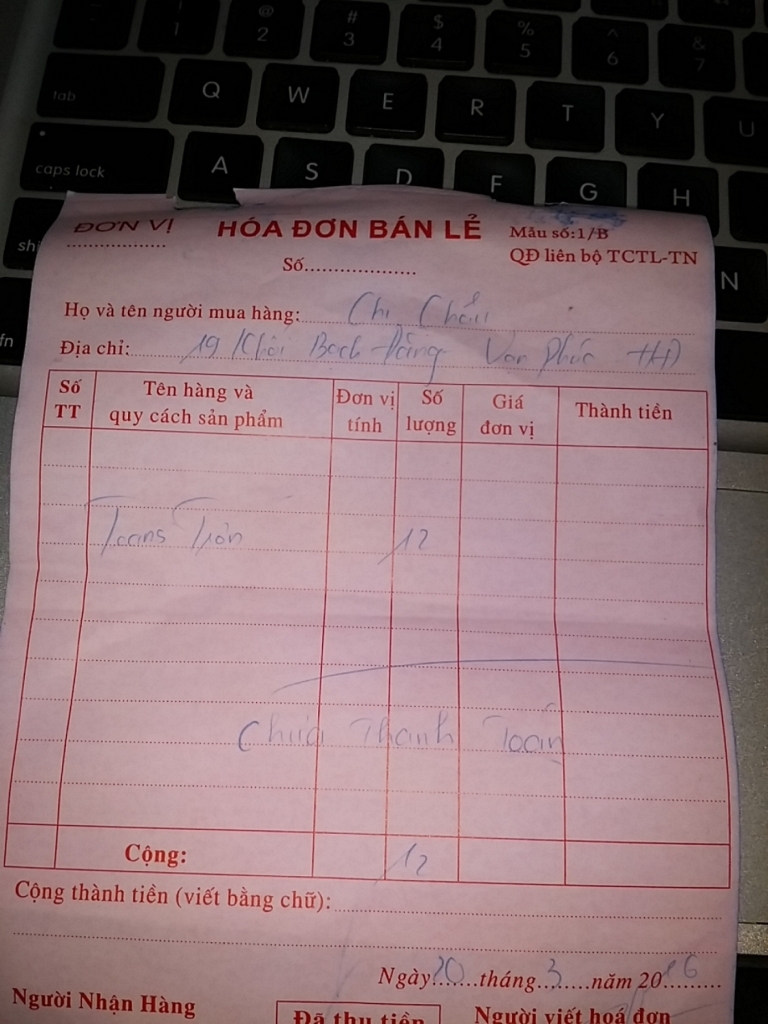 @ # $ % ^ &
1 2 3 4 5 6 7
tab Q W E R T Y U
caps lock A S D F G H
N
fn
ĐƠN VỊ HÓA ĐƠN BÁN LẺ Mẫu số:1/B
Số.................... QĐ liên bộ TCTL-TN
Họ và tên người mua hàng: Chị Châu
Địa chỉ: 19 Bạch Đằng Vạn Phúc HĐ
Số TT Tên hàng và quy cách sản phẩm Đơn vị tính Số lượng Giá đơn vị Thành tiền
Trơn 12
Chưa Thanh Toán
Cộng: 12
Cộng thành tiền (viết bằng chữ):
Ngày 20 tháng 3 năm 2016
Người Nhận Hàng Đã thu tiền Người viết hoá đơn